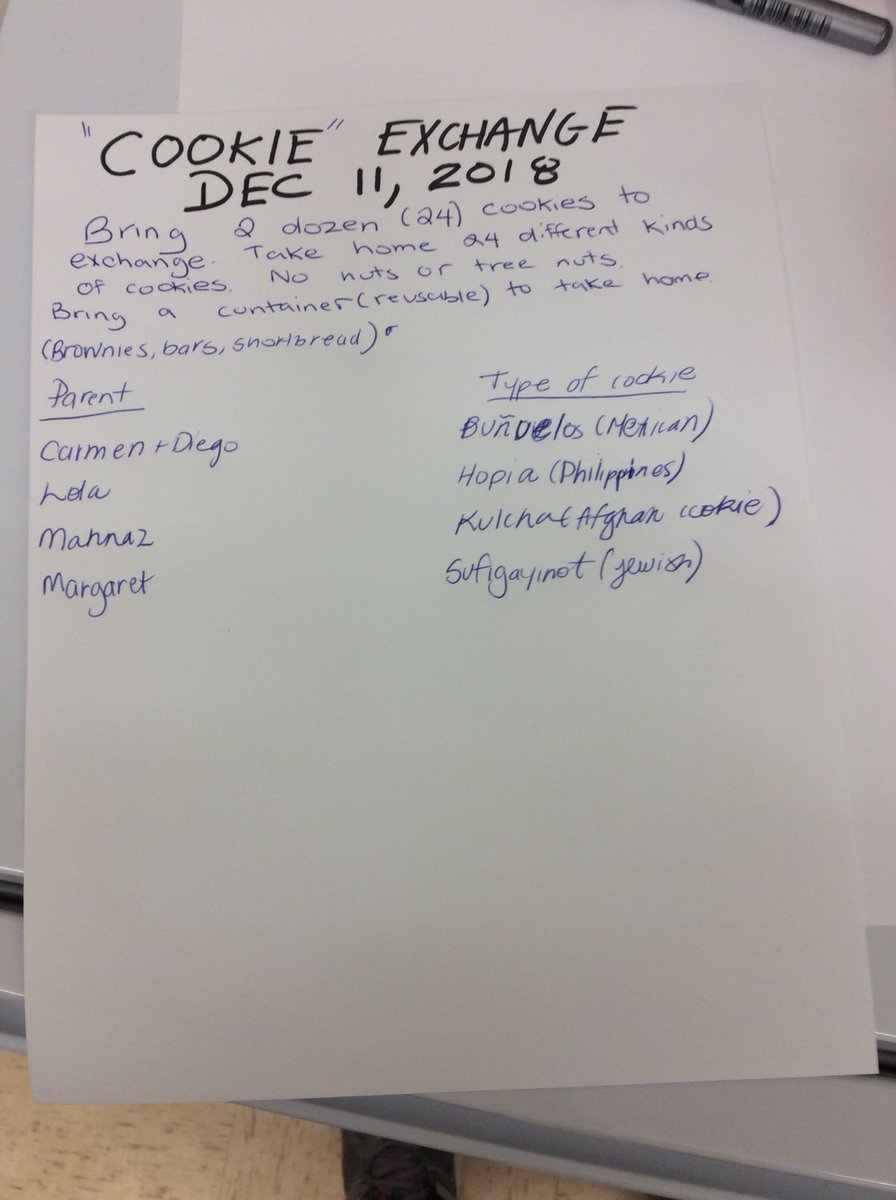 "COOKIE" EXCHANGE
DEC 11, 2018
Bring 2 dozen (24) cookies to
exchange. Take home 24 different kinds
of cookies. No nuts or tree nuts.
Bring a container (reusable) to take home.
(Brownies, bars, shortbread)
Parent Type of cookie
Carmen + Diego Buñuelos (Mexican)
Lola Hopia (Philippines)
Mahnaz Kulcha (Afghan cookie)
Margaret Sufigayinot (jewish)